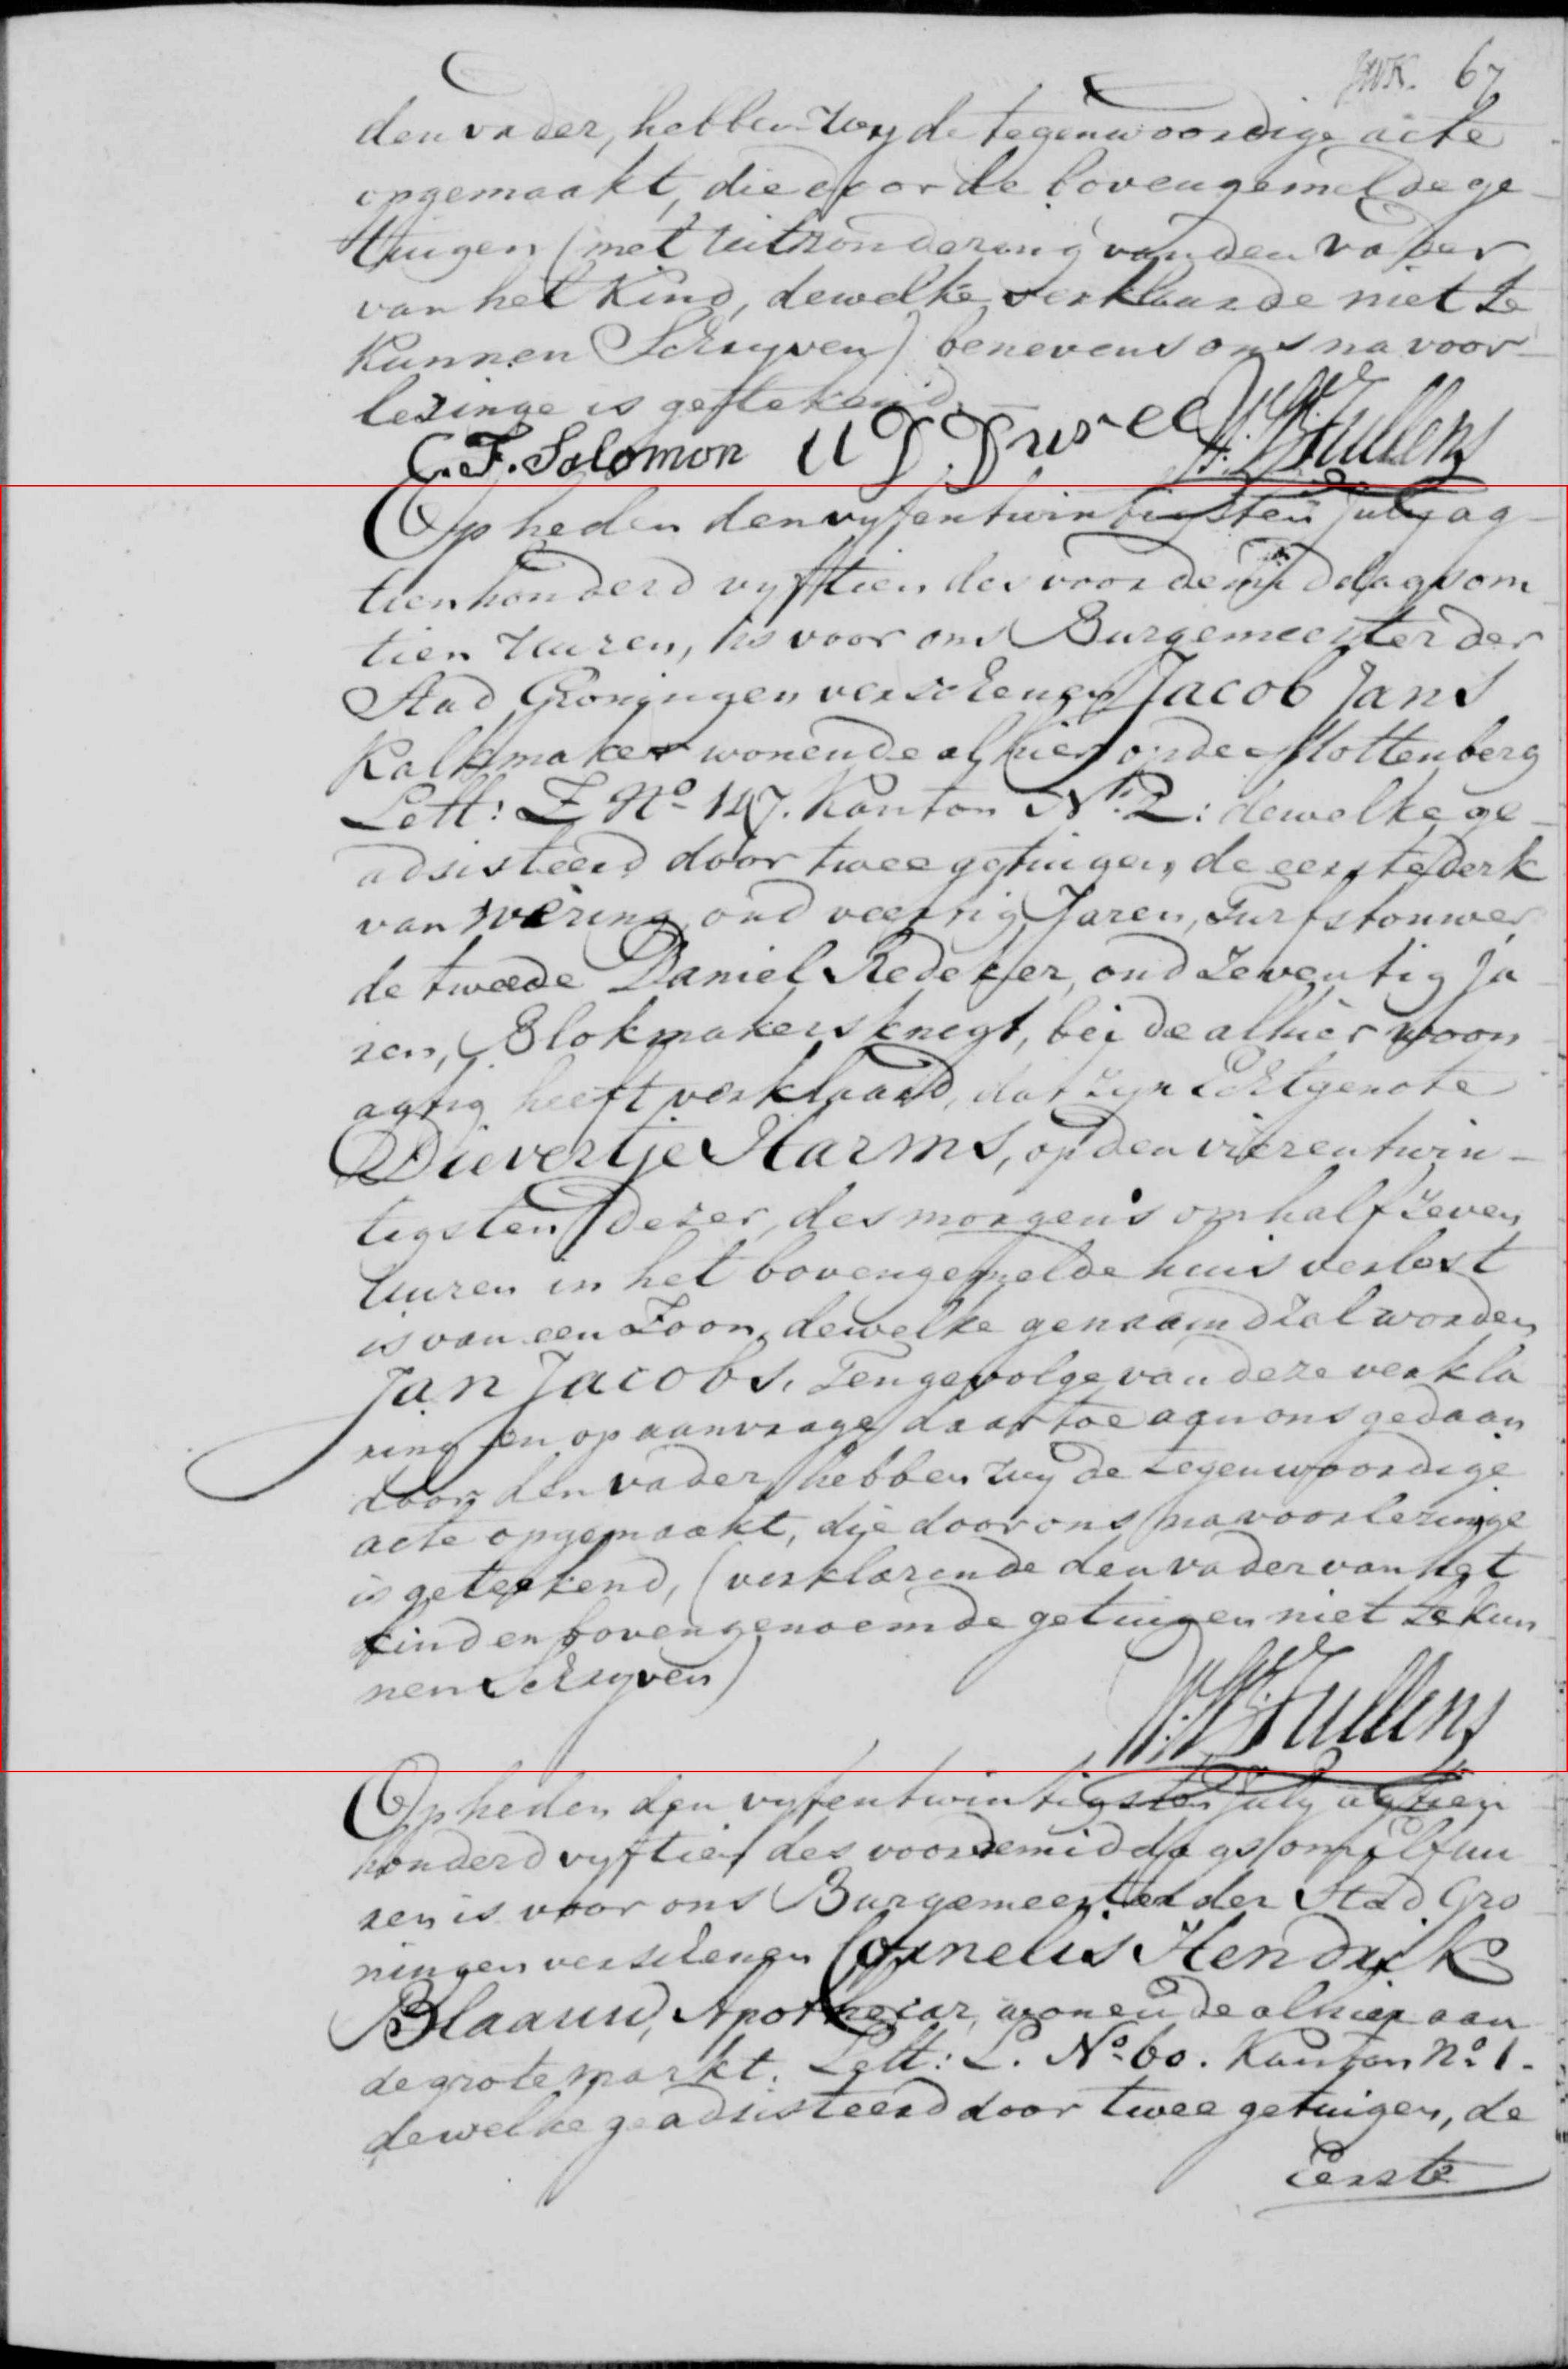 JWK. 67
den vader, hebben wy de tegenwoordige acte
opgemaakt, die door de bovengemelde ge-
tuigen (met uitzondering van den vader
van het Kind, dewelke verklaarde niet te
Kunnen Schryven) benevens ons na voor-
lezinge is getekend.
E. F. Solomon
Op heden den vyfentwintigsten July ag-
tienhonderd vyftien des voordemiddags om
tien Uuren, is voor ons Burgemeester der
Stad Groningen verschenen Jacob Jans
Kalkmaker wonende alhier op de Mottenberg
Lett: Z No 147. Kanton No. 2: dewelke ge-
adsisteerd door twee getuigen, de eerste derk
van wering oud veertig Jaren, Turfstouwer
de tweede Daniel Redeker, oud zeventig Ja-
ren, Blokmakersknegt, beide alhier woon-
agtig heeft verklaard, dat zyn Egtgenote
Dievertje Harms, op den vierentwin-
tigsten dezer, des morgens om half zeven
Uuren in het bovengemelde huis verlost
is van een Zoon, dewelke genaamd zal worden
Jan Jacobs. Tengevolge van deze verkla
ring en op aanvrage daartoe aan ons gedaan
door den vader, hebben wy de tegenwoordige
acte opgemaakt, die door ons na voorlezinge
is getekend, (verklarende den vader van het
kind en bovengenoemde getuigen niet te kun
nen Schryven)
Op heden den vyfentwintigsten July agtien
honderd vyftien des voordemiddags om Elf uu
ren is voor ons Burgemeester der Stad Gro
ningen verschenen Cornelis Hendrik
Blaauw, Apothecar, wonende alhier aan
de grote markt. Lett: L. No. 60. Kanton No. 1.
dewelke geadsisteerd door twee getuigen, de
Eerste